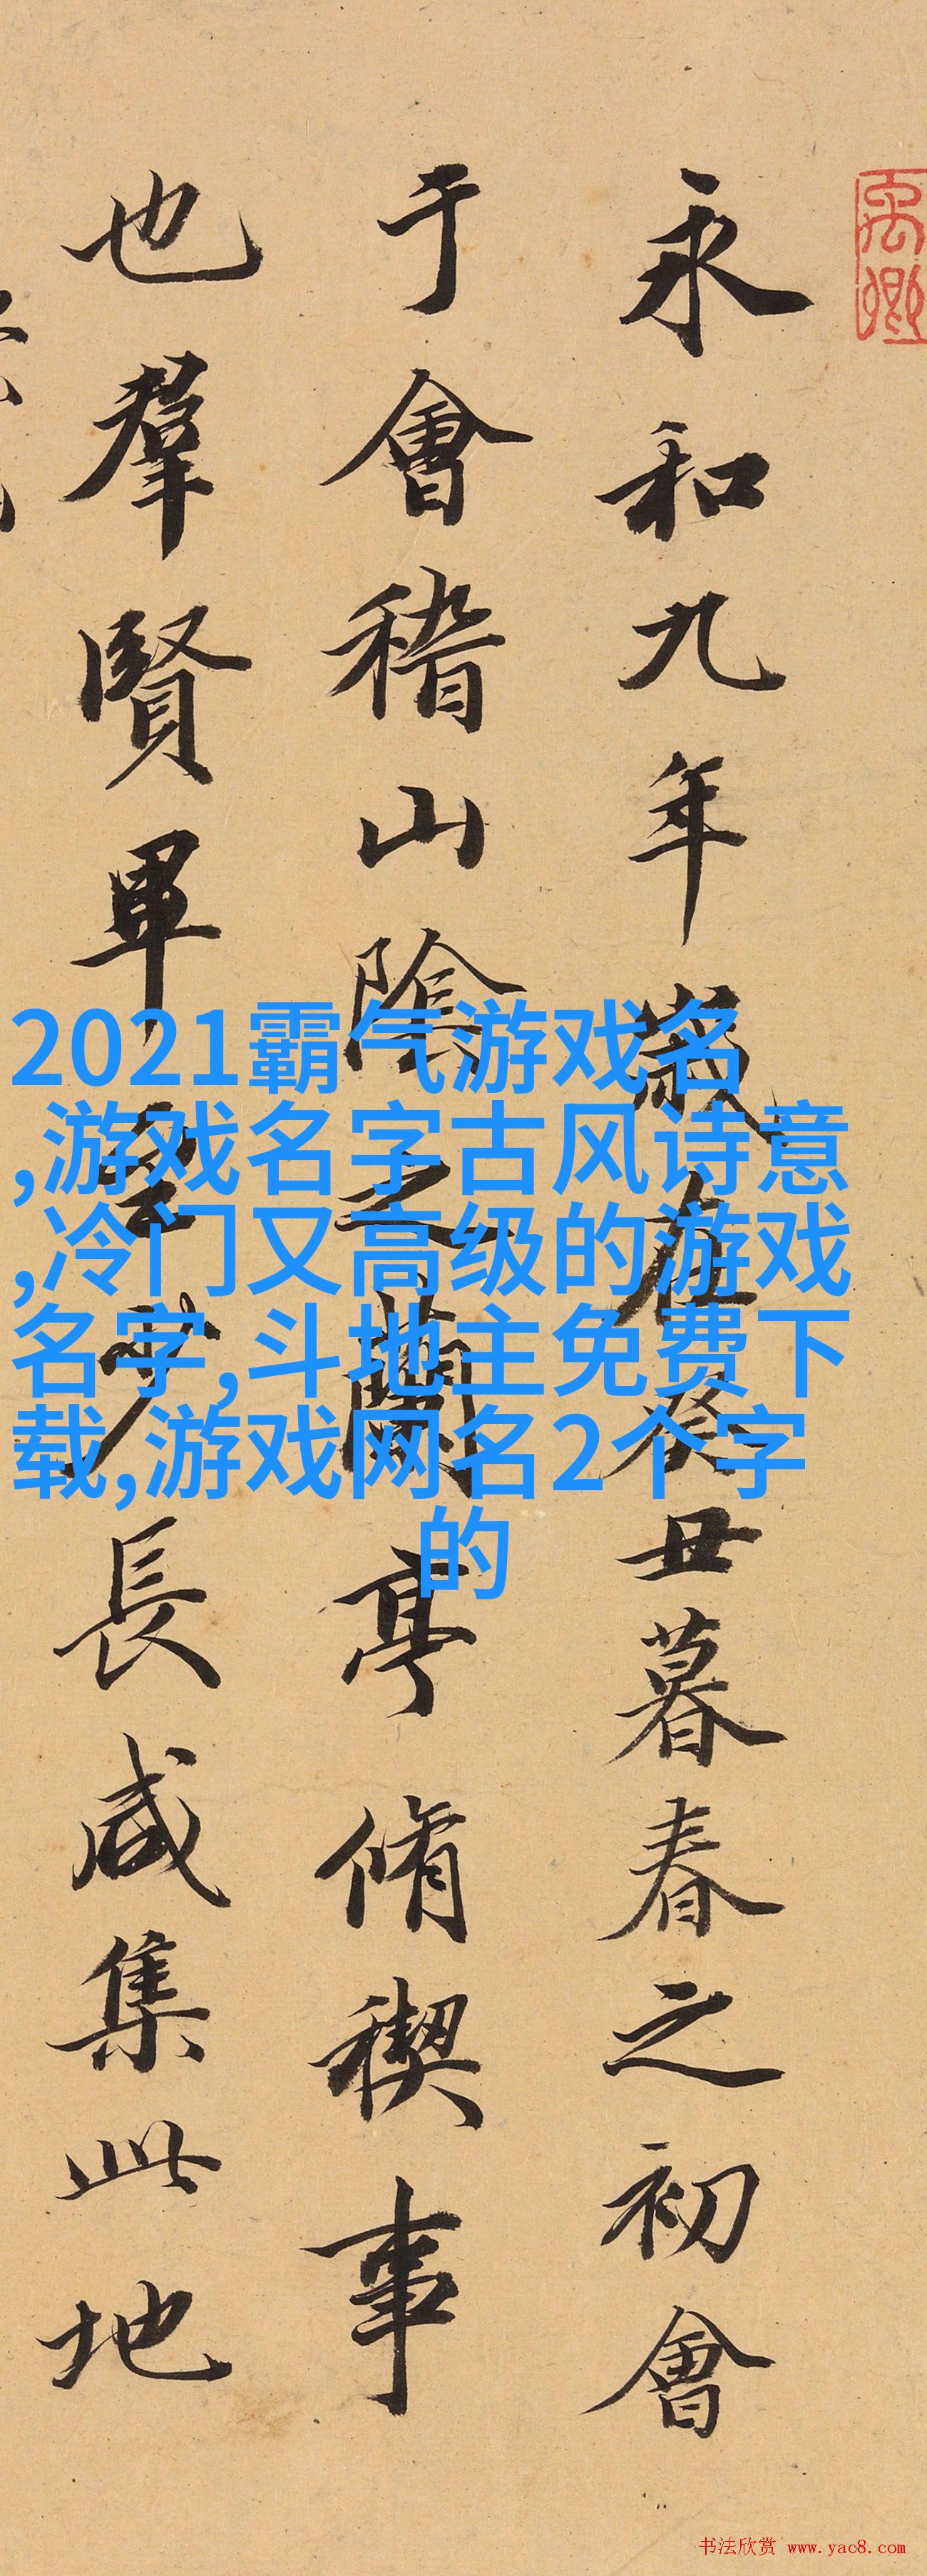 禹卿
永和九年歲在癸丑暮春之初會
于會稽山陰之蘭亭脩稧事
也羣賢畢至少長咸集此地
2021霸气游戏名
,游戏名字古风诗意
,冷门又高级的游戏
名字,斗地主免费下
载,游戏网名2个字
的
书法欣赏 www.yac8.com